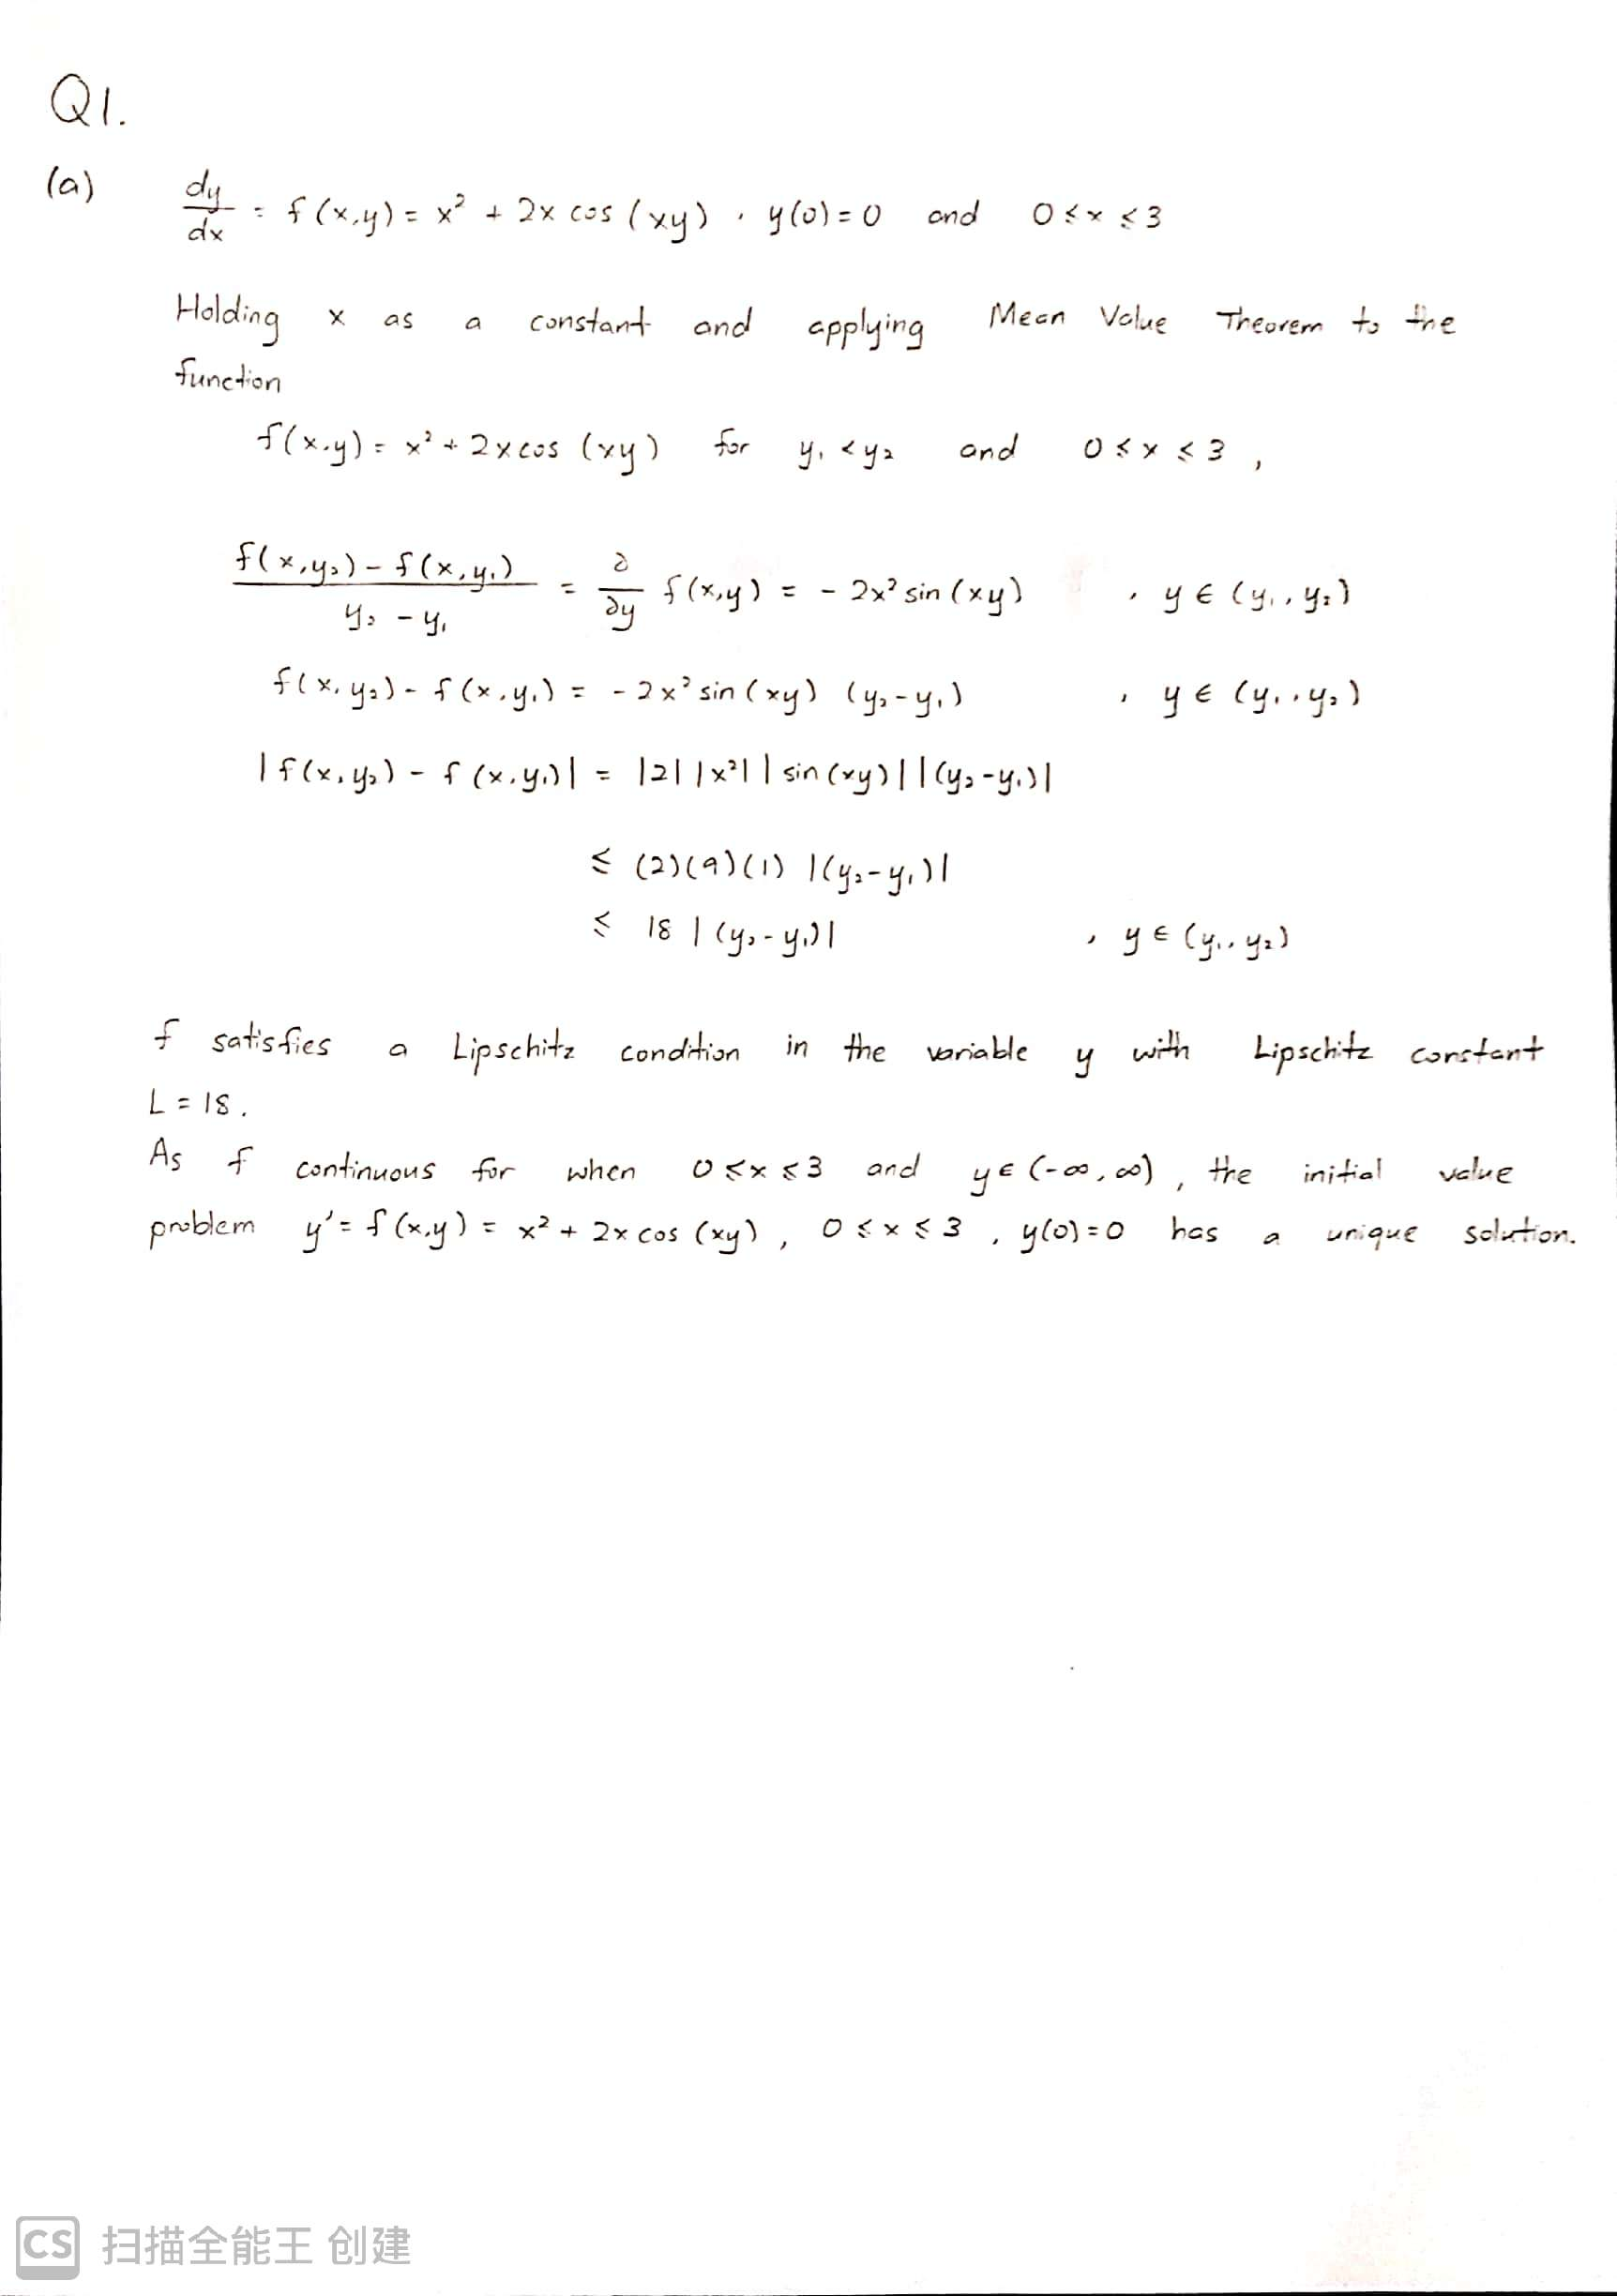 Q1.
(a) dy/dx = f(x,y) = x² + 2x cos(xy), y(0)=0 and 0≤x≤3
Holding x as a constant and applying Mean Value Theorem to the
function
f(x,y) = x² + 2x cos(xy) for y₁<y₂ and 0≤x≤3,
(f(x,y₂) - f(x,y₁))/(y₂ - y₁) = ∂/∂y f(x,y) = -2x² sin(xy) , y∈(y₁,y₂)
f(x,y₂) - f(x,y₁) = -2x² sin(xy) (y₂-y₁) , y∈(y₁,y₂)
|f(x,y₂) - f(x,y₁)| = |2||x²||sin(xy)||(y₂-y₁)|
≤ (2)(9)(1) |(y₂-y₁)|
≤ 18 |(y₂-y₁)| , y∈(y₁,y₂)
f satisfies a Lipschitz condition in the variable y with Lipschitz constant
L = 18.
As f continuous for when 0≤x≤3 and y∈(-∞,∞), the initial value
problem y' = f(x,y) = x² + 2x cos(xy), 0≤x≤3, y(0)=0 has a unique solution.
CS 扫描全能王 创建